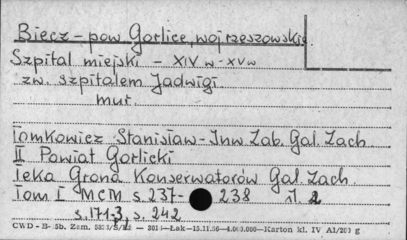 Biecz - pow Gorlice, woj rzeszowskie
Szpital miejski - XIV w - XV w
zw. szpitalem Jadwigi
mur.
Tomkowicz Stanisław - Inw Zab. Gal. Zach
II Powiat Gorlicki
Teka Grona Konserwatorów Gal Zach.
Tom I MCM s. 237- 238 il. 2
s. 171-3, s. 242
CWD - B- Zam. -Karton kl. IV A1/200 g